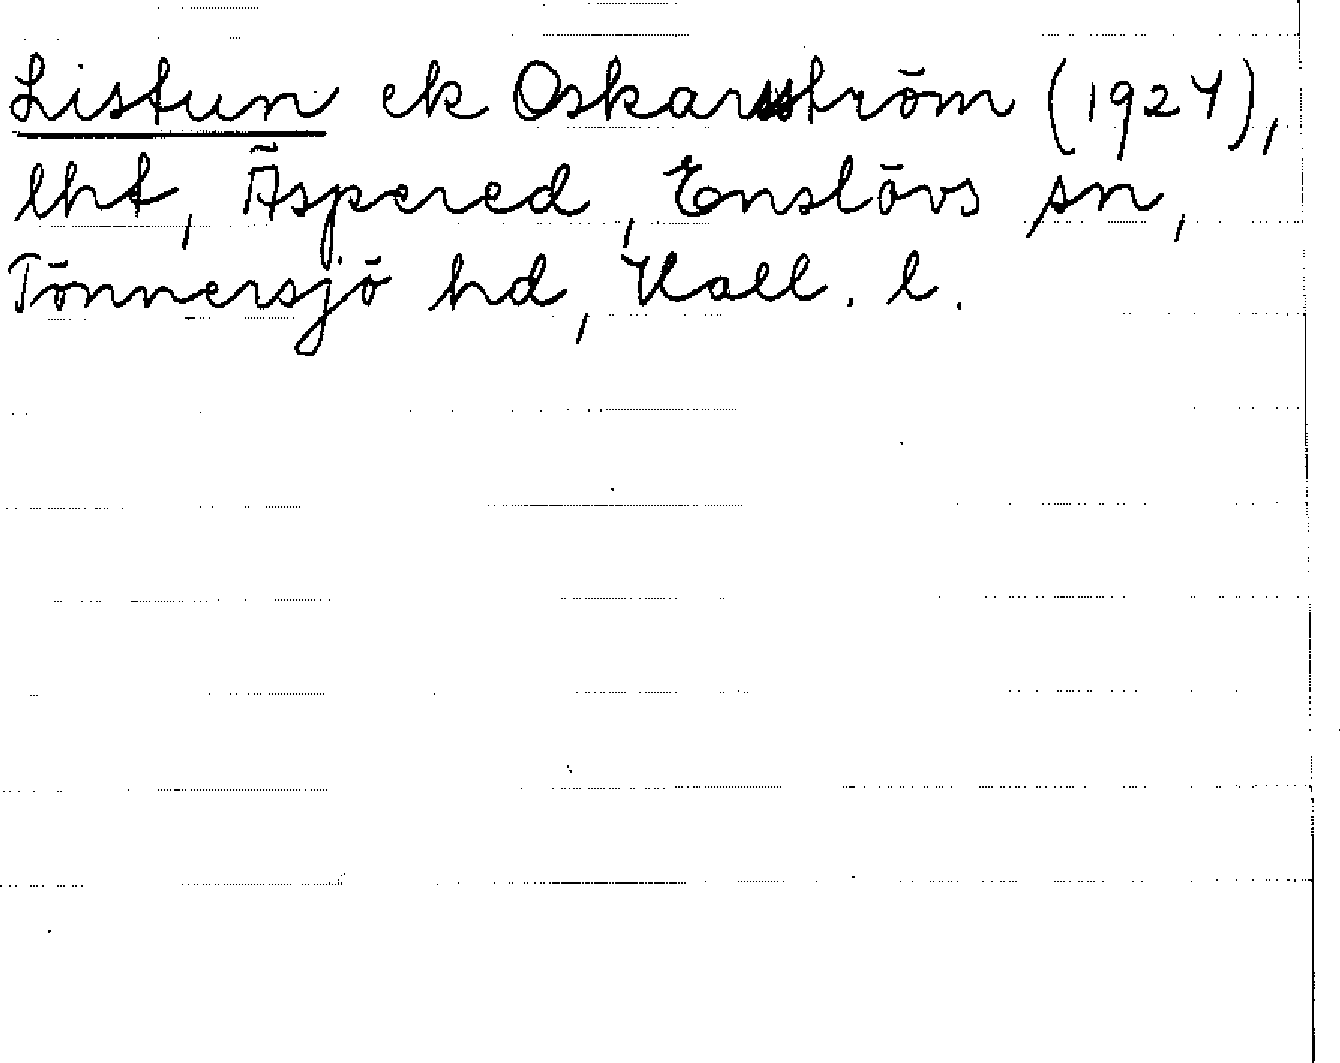 Listun ek Oskarsström (1927),
lht, Äspered, Enslövs sn,
Tönnersjö hd, Hall. l.